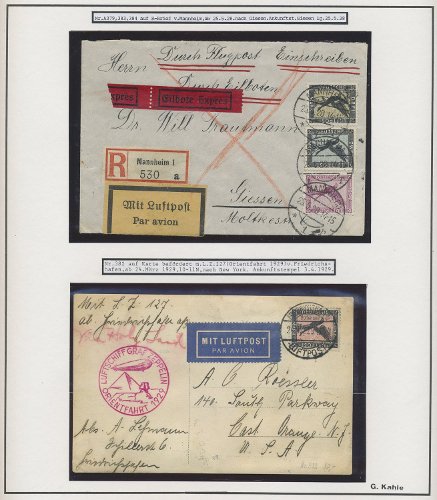 Nr.A379,383,384 auf R-Brief v.Mannheim,am 25.5.28,nach Giessn.Ankunftst.Giesen Lg.25.5.28
Durch Flugpost Einschreiben
Herrn
Durch Eilboten
Exprès
Eilbote Exprès
Dr. Will Trautmann
R
Mannheim 1
530 a
Mit Luftpost
Par avion
Giessen
Nr.380 auf Karte befördert m.L.Z.127(Orientfahrt 1929)v.Friedrichs-
hafen,ab 24.März 1929,10-11N,nach New York. Ankunftstempel 3.4.1929.
ab Friedrichshafen
MIT LUFTPOST
PAR AVION
LUFTSCHIFF GRAF ZEPPELIN
ORIENTFAHRT 1929
LUFTPOST
A C Roessler
140 South Parkway
East Orange N.J.
U.S.A
Abs. A. Lehmann
Friedrichshafen
G. Kahle